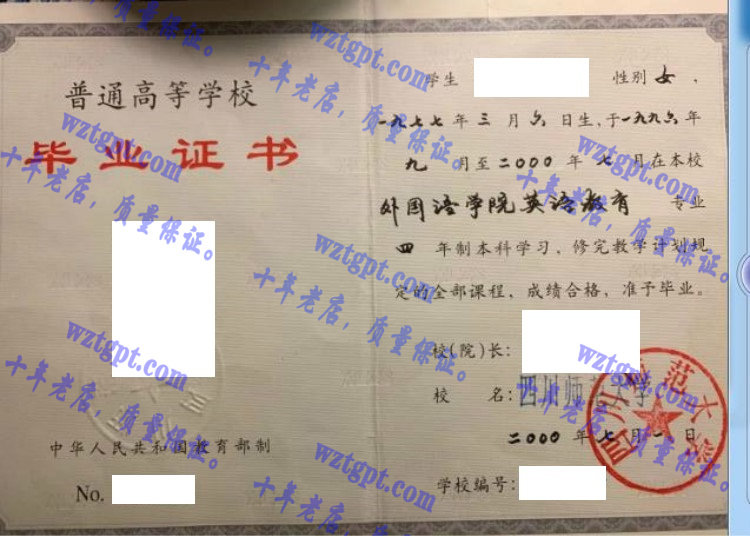 普通高等学校
毕业证书
中华人民共和国教育部制
No.
学生 性别 女，
一九七七年三月六日生，于一九九六年
九月至二000年七月在本校
外国语学院英语教育 专业
四年制本科学习，修完教学计划规
定的全部课程，成绩合格，准予毕业。
校(院)长：
校 名：四川师范大学
二000年七月一日
学校编号：
四川师范大学
wztgpt.com
十年老店，质量保证。
wztgpt.com
十年老店，质量保证。
wztgpt.com
十年老店，质量保证。
wztgpt.com
十年老店，质量保证。
wztgpt.com
十年老店，质量保证。
wztgpt.com
十年老店，质量保证。
wztgpt.com
十年老店，质量保证。
wztgpt.com
十年老店，质量保证。